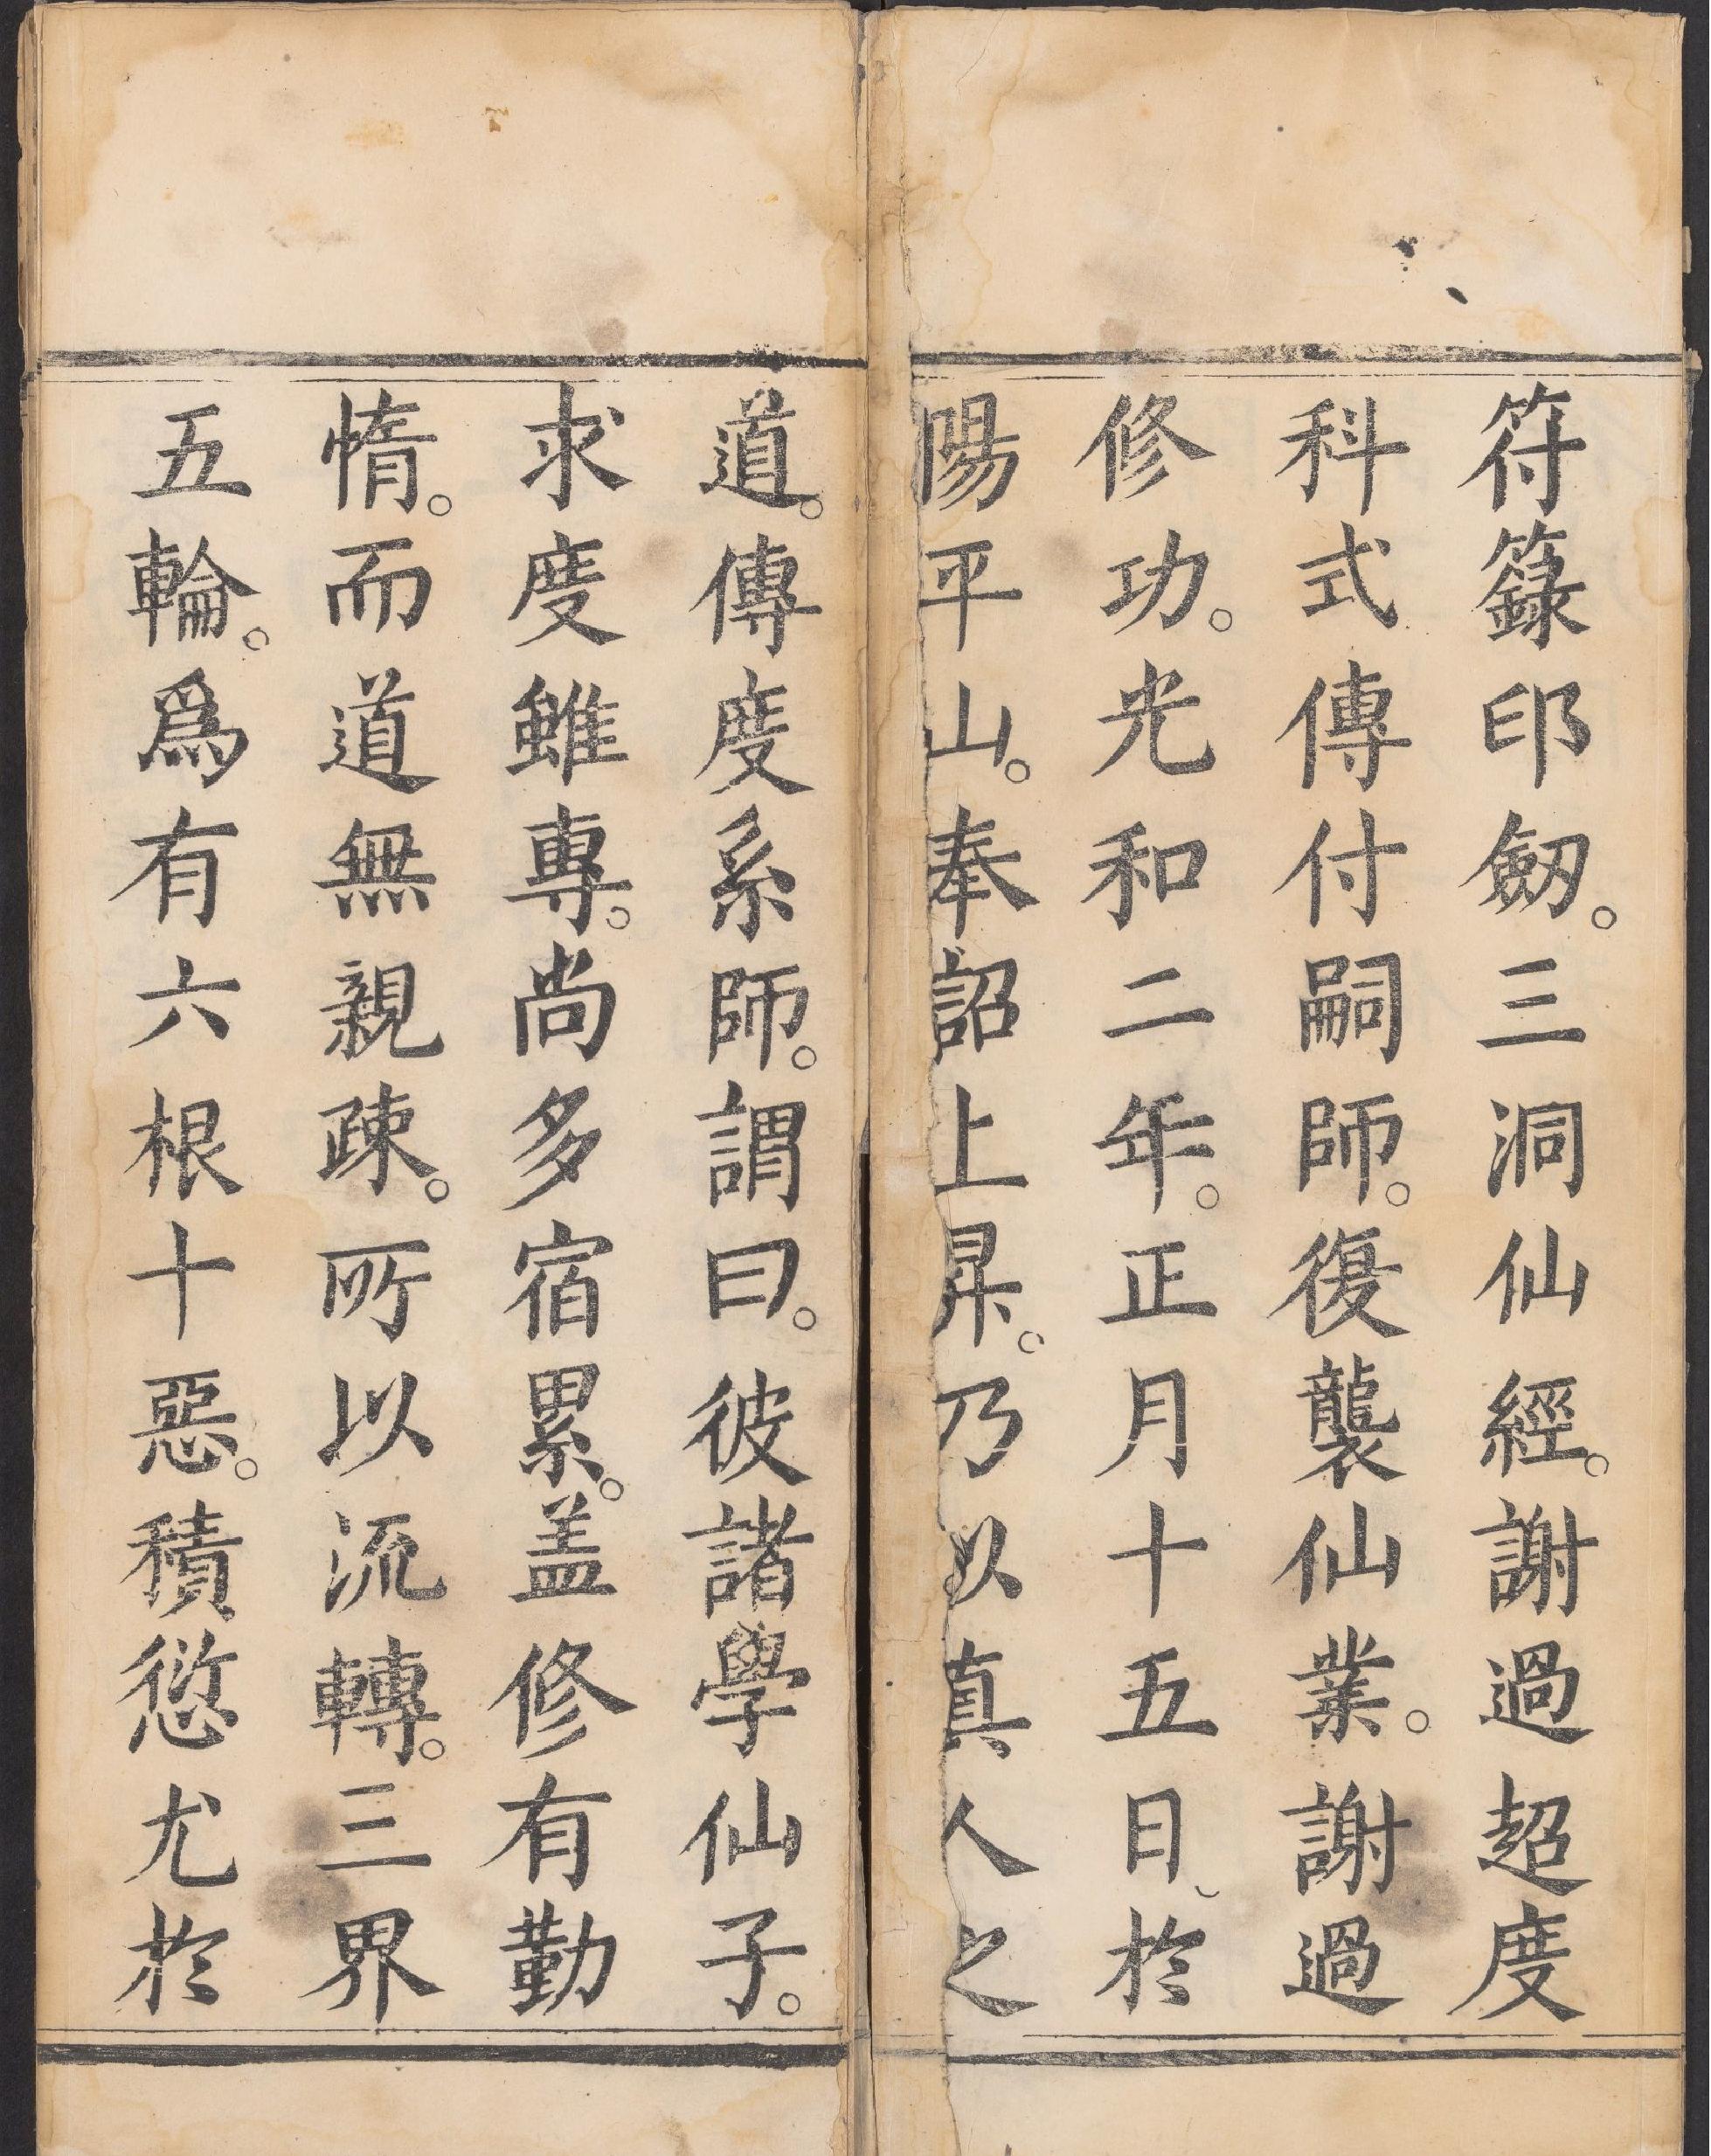 符籙印劒。三洞仙經。謝過超度
科式傳付嗣師。復襲仙業。謝過
修功。光和二年。正月十五日、於
陽平山。奉詔上昇。乃以真人之
道。傳度系師。謂曰。彼諸學仙子。
求度雖專。尚多宿累。盖修有勤
惰。而道無親疎。所以流轉。三界
五輪。爲有六根十惡。積愆尤於